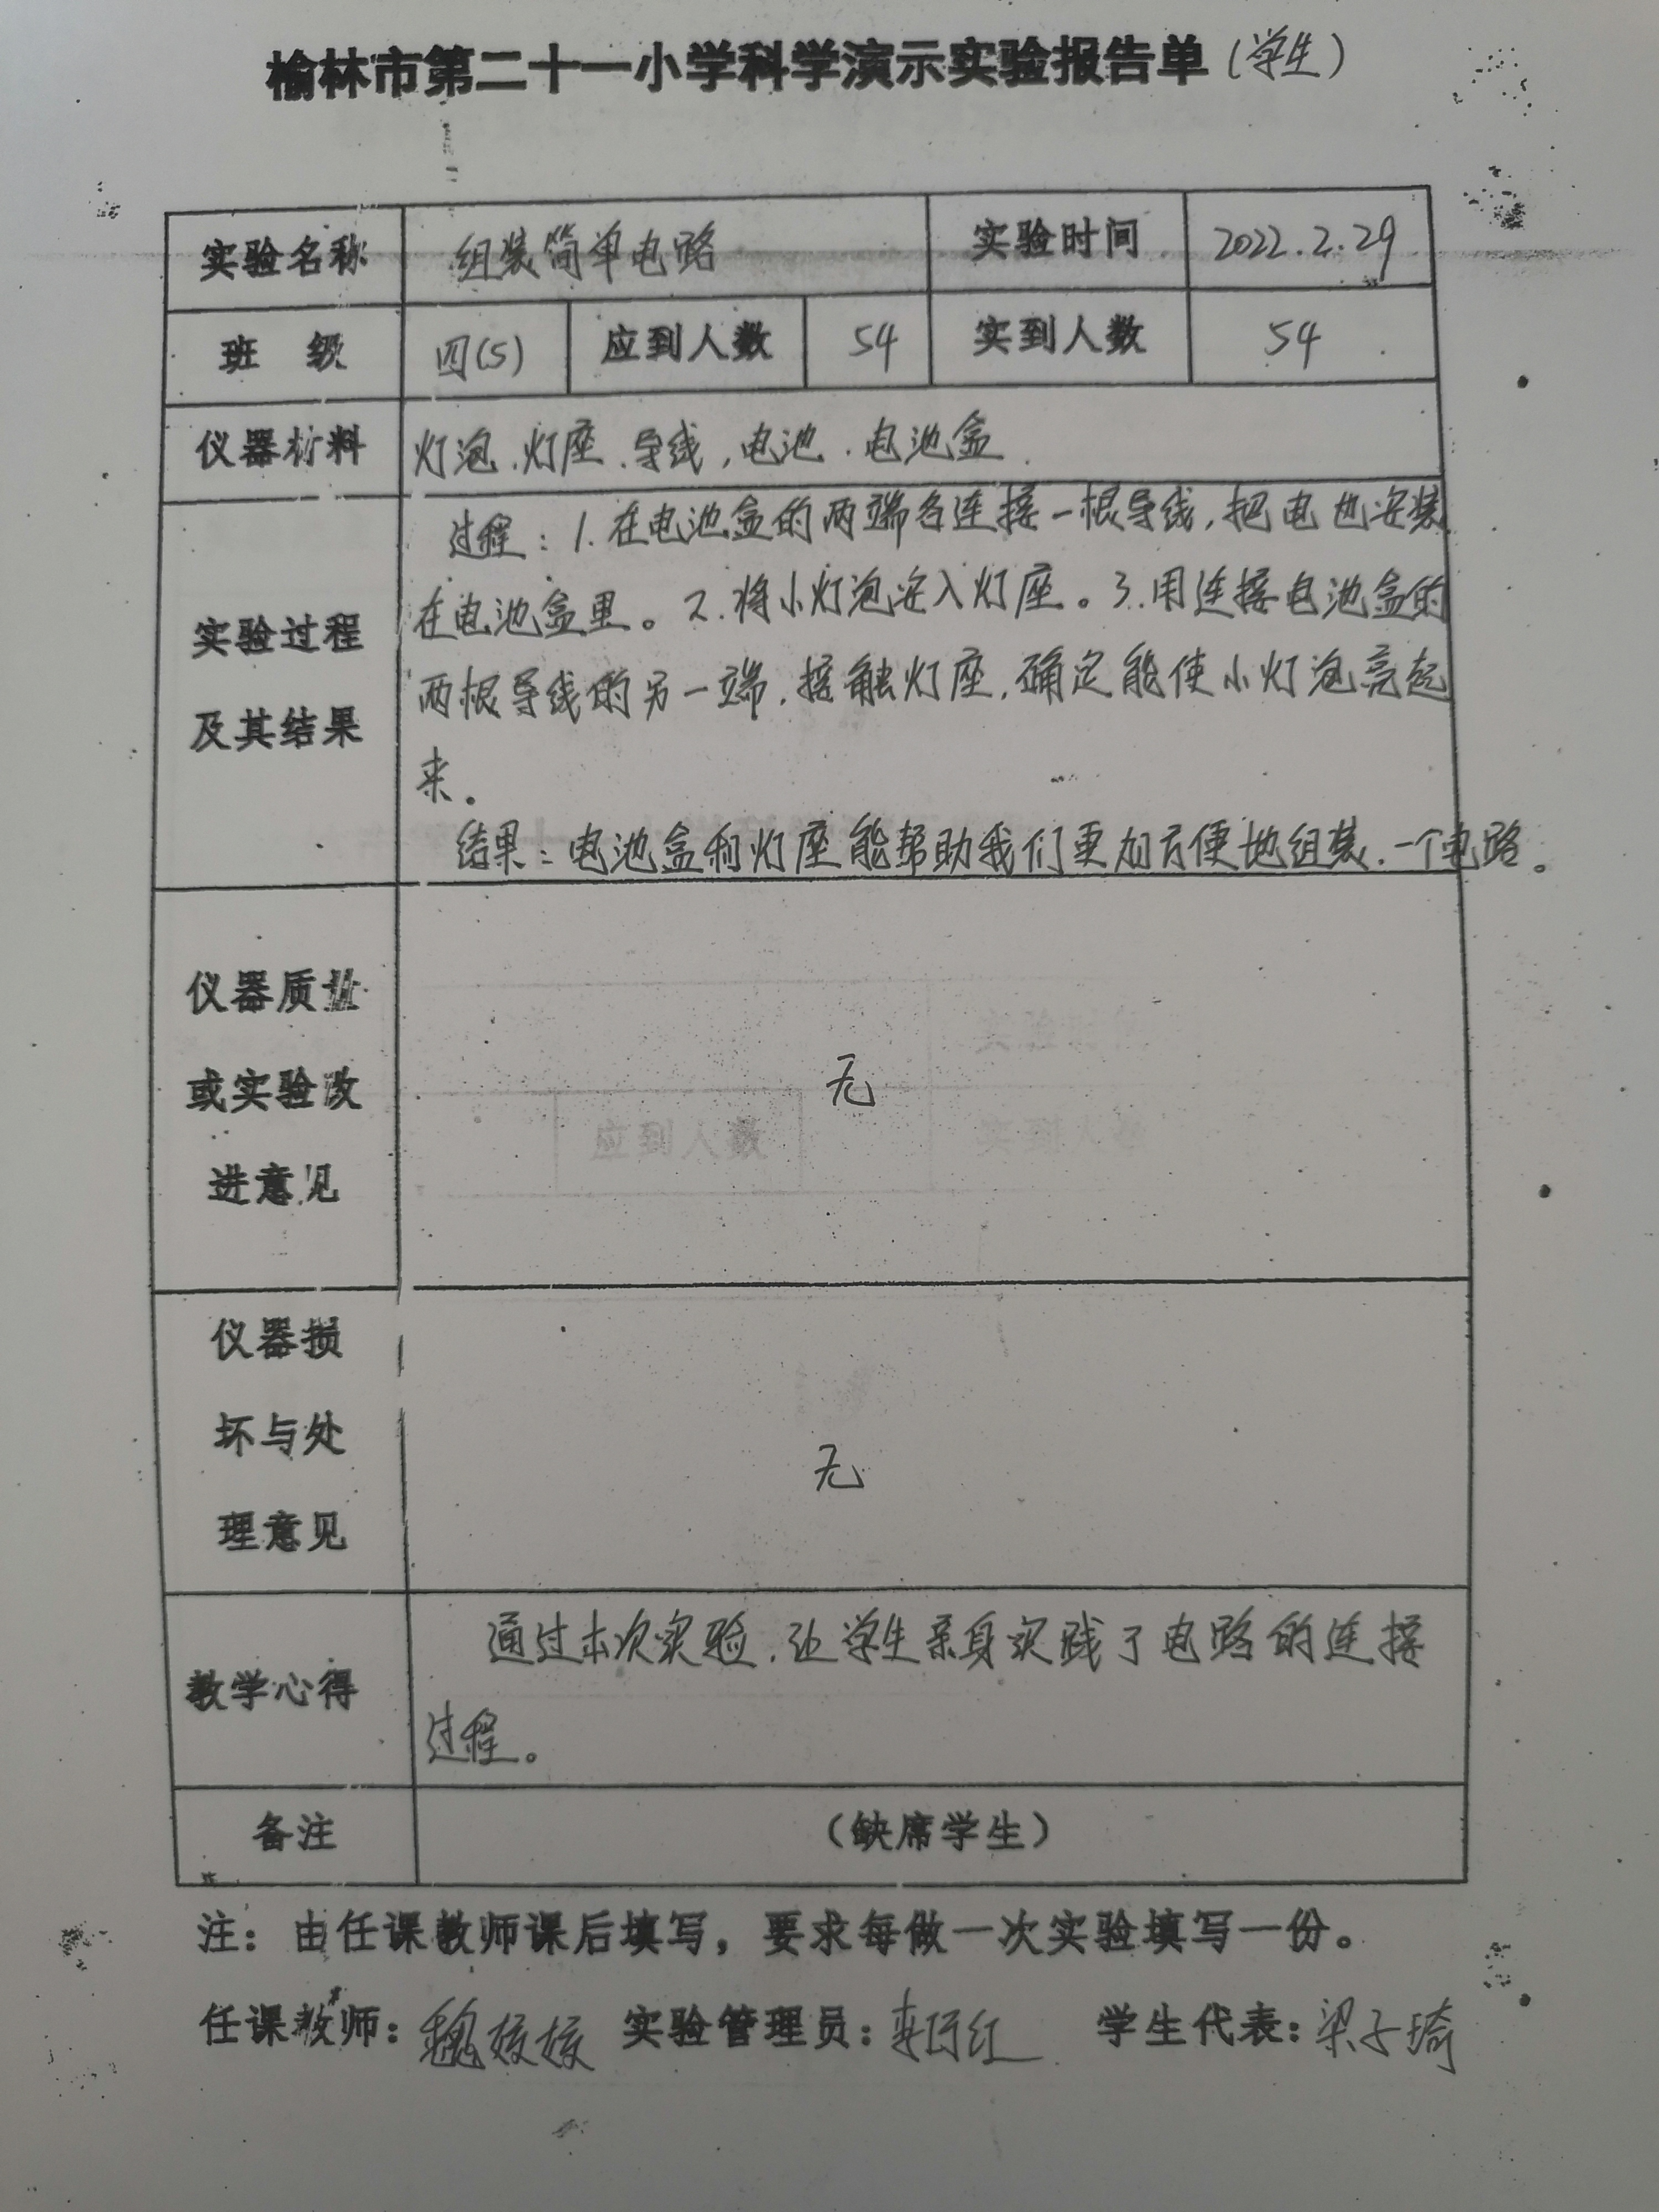 榆林市第二十一小学科学演示实验报告单(学生)
实验名称 组装简单电路 实验时间 2022.2.29
班 级 四(5) 应到人数 54 实到人数 54
仪器材料 灯泡、灯座、导线,电池、电池盒
过程:1.在电池盒的两端各连接一根导线,把电池安装
在电池盒里。2.将小灯泡安入灯座。3.用连接电池盒的
实验过程
两根导线的另一端,接触灯座,确定能使小灯泡亮起
及其结果
来。
结果:电池盒和灯座能帮助我们更加方便地组装.一个电路。
仪器质量
或实验改
进意见
无
仪器损
坏与处
理意见
无
教学心得
通过本次实验,让学生亲身实践了电路的连接
过程。
备注 (缺席学生)
注:由任课教师课后填写,要求每做一次实验填写一份。
任课教师:魏姣姣 实验管理员: 学生代表:梁子琦